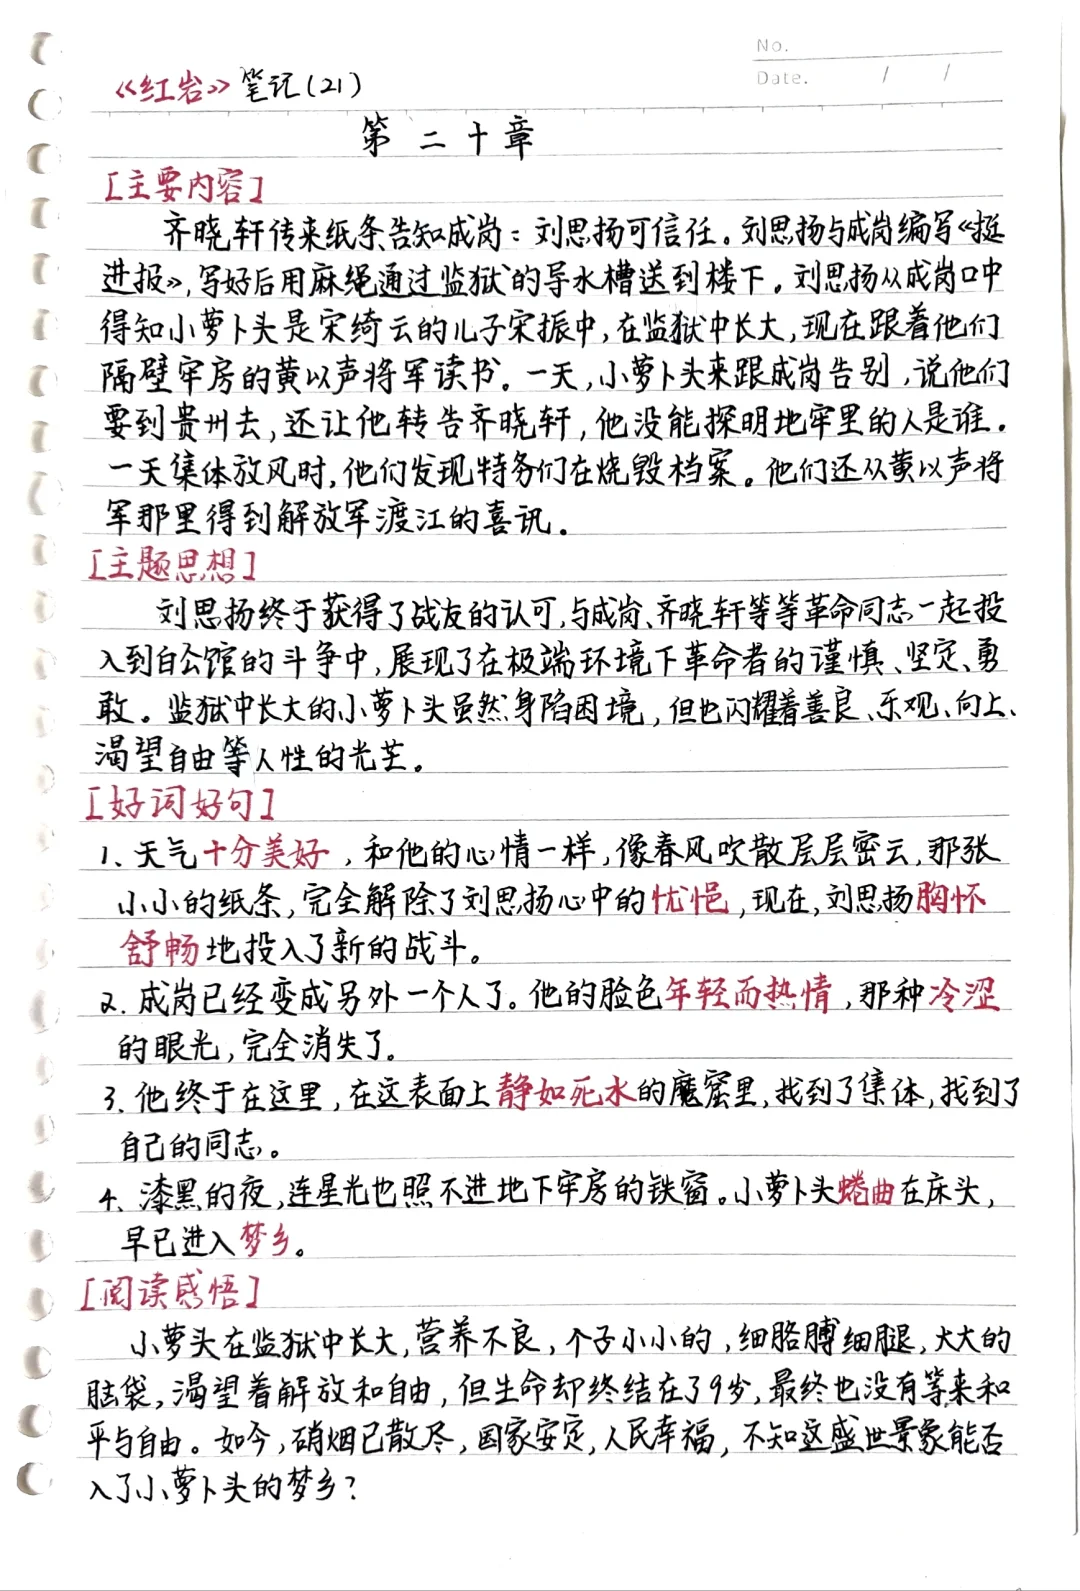 No.
Date. / /
《红岩》笔记(21)
第二十章
[主要内容]
齐晓轩传来纸条告知成岗：刘思扬可信任。刘思扬与成岗编写《挺
进报》,写好后用麻绳通过监狱的导水槽送到楼下。刘思扬从成岗口中
得知小萝卜头是宋绮云的儿子宋振中,在监狱中长大,现在跟着他们
隔壁牢房的黄以声将军读书。一天,小萝卜头来跟成岗告别,说他们
要到贵州去,还让他转告齐晓轩,他没能探明地牢里的人是谁。
一天集体放风时,他们发现特务们在烧毁档案。他们还从黄以声将
军那里得到解放军渡江的喜讯。
[主题思想]
刘思扬终于获得了战友的认可,与成岗、齐晓轩等等革命同志一起投
入到白公馆的斗争中,展现了在极端环境下革命者的谨慎、坚定、勇
敢。监狱中长大的小萝卜头虽然身陷困境,但也闪耀着善良、乐观、向上、
渴望自由等人性的光芒。
[好词好句]
1、天气十分美好,和他的心情一样,像春风吹散层层密云,那张
小小的纸条,完全解除了刘思扬心中的忧悒,现在,刘思扬胸怀
舒畅地投入了新的战斗。
2. 成岗已经变成另外一个人了。他的脸色年轻而热情,那种冷涩
的眼光,完全消失了。
3. 他终于在这里,在这表面上静如死水的魔窟里,找到了集体,找到了
自己的同志。
4、漆黑的夜,连星光也照不进地下牢房的铁窗。小萝卜头蜷曲在床头,
早已进入梦乡。
[阅读感悟]
小萝头在监狱中长大,营养不良,个子小小的,细胳膊细腿,大大的
脑袋,渴望着解放和自由,但生命却终结在了9岁,最终也没有等来和
平与自由。如今,硝烟已散尽,国家安定,人民幸福,不知这盛世景象能否
入了小萝卜头的梦乡?